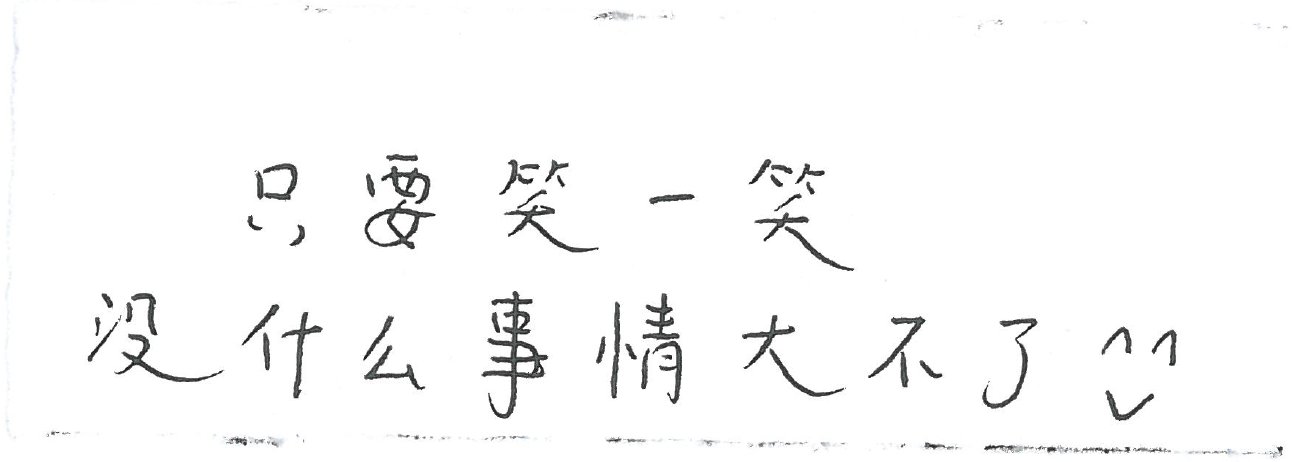 只要笑一笑
没什么事情大不了 ^^